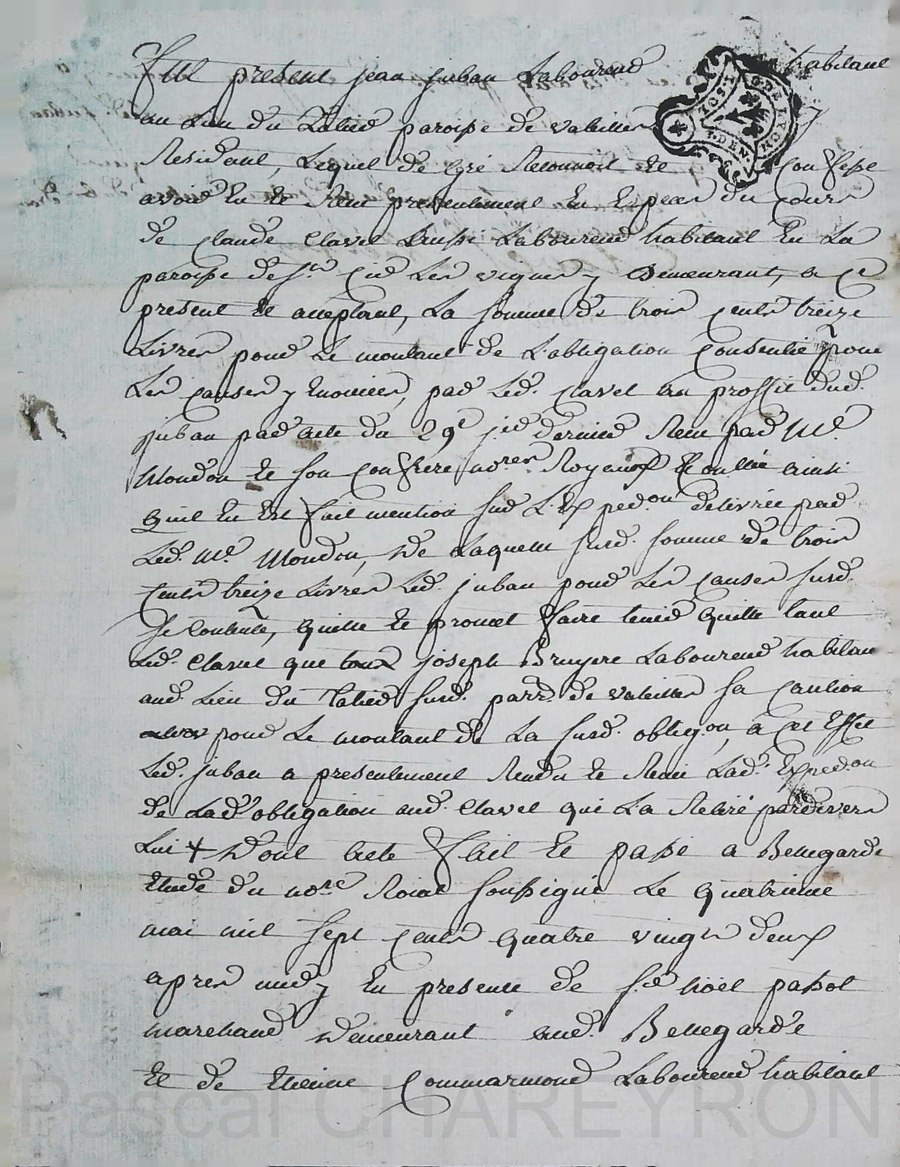 Fut present jean juban Laboureur habitant
au Lieu du Talud paroisse de valeilles
Residant, Lequel de gré Reconnoit et Confesse
avoir Eu et Receu presentement En Especes du Cours
de Claude Clavel aussi Laboureur habitant En La
paroisse de St Cir Les vignes y Demeurant, a ce
present et acceptant, La somme de trois cents treize
Livres pour Le montant de L'obligation Consentie pour
Les causes y Enoncées, par Led. Clavel au proffit dud.
juban par acte du 29e jer dernier Receu par Me
Mondon et son Confrere nores Royaux Controllée ainsi
quil En Est fait mention sur L'Expedon delivrée par
Led. Me Mondon, De Laquelle susd. somme de trois
cents treize Livres Led. juban pour Les causes susd.
se Contente, quitte et promet faire tenir quitte tant
Led. Clavel que joseph Bruyere Laboureur habitant
aud Lieu du Talud susd. parr. de valeilles sa Caution
pour Le montant de La susd. obligon, a Cet Effet
Led. juban a presentement Rendu et Remi Lad. Expedon
de Lad. obligation aud. Clavel qui La Retiré pardevers
Lui + Dont acte fait et passé a Bellegarde
Etude du nore Roial soussigné Le quatrieme
mai mil sept cents quatre vingts deux
apres midy En presence de Sr. noël passot
marchand Demeurant aud. Bellegarde
Et de Etienne Commarmond Laboureur habitant
G. DE LYON
4. DEN.
Pascal CHAREYRON